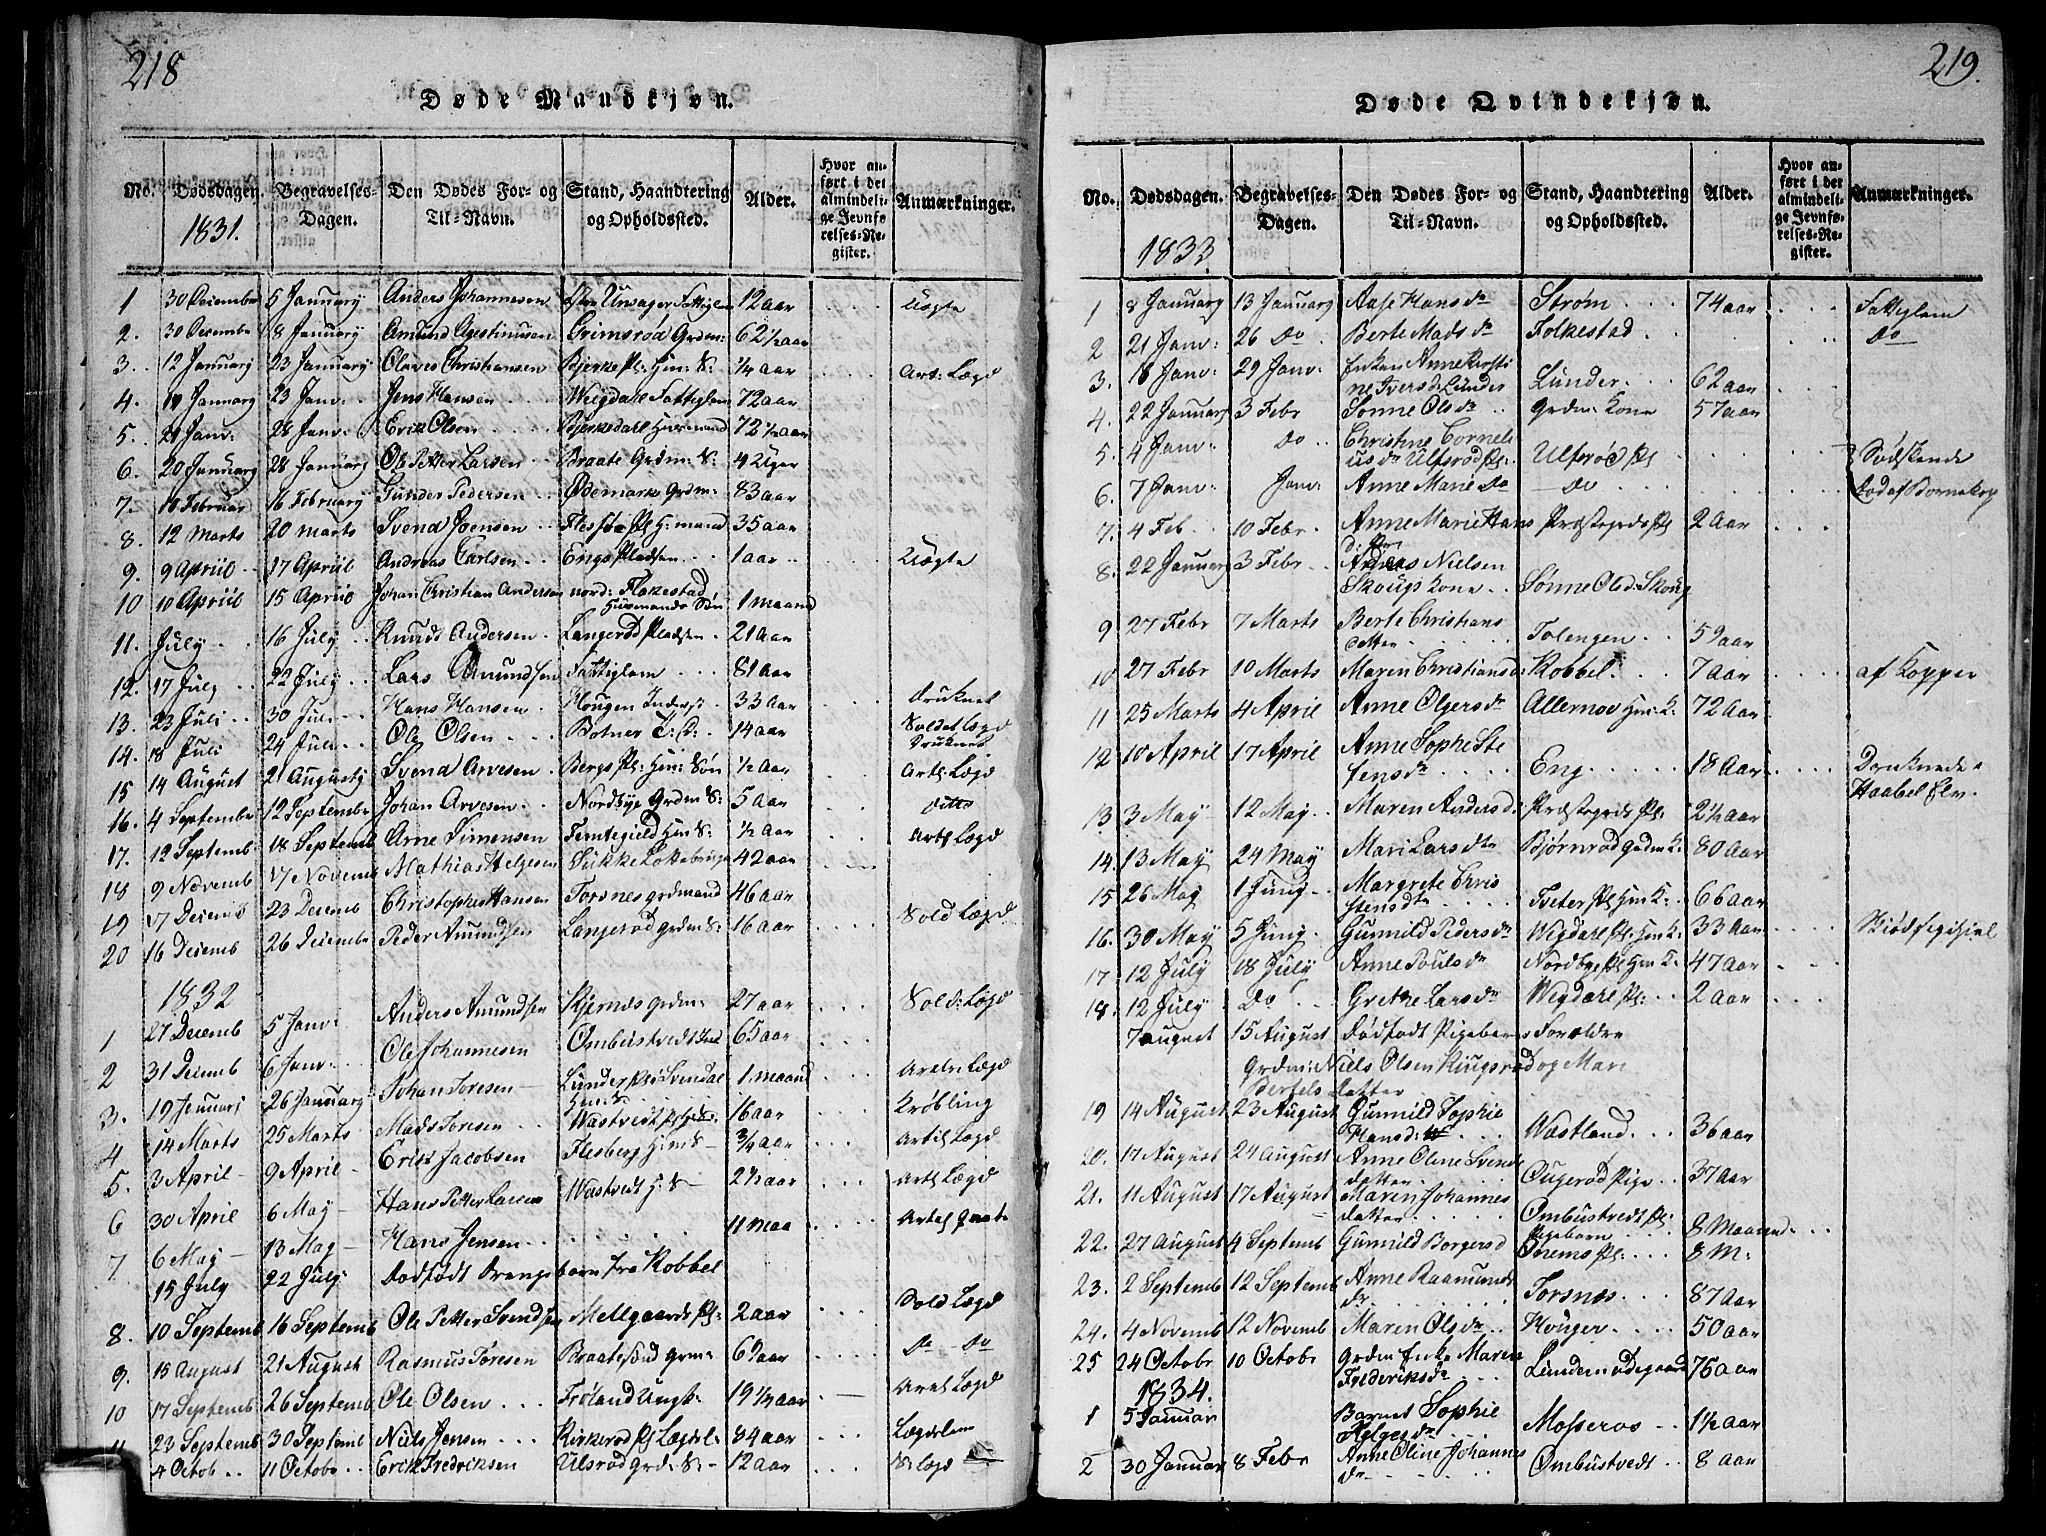 218
Døde Mandkjøn.
No. Dødsdagen. Begravelses-Dagen. Den Dødes For- og Til-Navn. Stand, Haandtering og Opholdssted. Alder. Hvor anført i det almindelige Jevnførelses-Register. Anmærkninger.
1831.
1 30 December 5 Januarij Anders Johannesen Unsager Fattiglem 12 aar
2. 30 Decembr 8 Januarij Amund Grimsrød Grdm: 62½ aar
3. 12 Januarij 23 Januarij Olaves Christiansen Bjerke Pl: Hm: S: ¼ aar Art: Lægd
4. 19 Januarij 23 Janv: Jens Hansen Wegdarl Fattiglem 72 aar
5. 21 Janv: 28 Janv: Erik Olsen Bjerkedarl Huusmand 72½ aar
6. 20 Januarij 28 Januarij Ole Petter Larsen Braate Grdm: S: 4 Uger
7. 10 Februar 16 Februarij Gunder Pedersen Ødemark Grdm: 83 aar
8. 12 Marts 20 Marts Svend Joensen Pl H:mand 35 aar
9. 9 Apriil 17 Apriil Andreas Carlsen Engs Pladsen 1 aar
10 10 Apriil 15 Apriil Johan Christian Andersen nord: Flakestad
Huusmands Søn 1 maaned
11. July 16 July Knud Andersen Langerød Pladsen 21 Aar
12. 17 July 22 July Lars Amundsen Fattiglem 81 aar
13. 23 Juli 30 Juli Hans Hansen Hougen Inderst 33 Aar Druknet
14. 18 Juli 24 Juli Ole Olsen Botner 14 aar Druknet
15 14 August 21 Augustij Svend Arvesen Bergs Pl: Hm: Søn ½ Aar Artl: Lægd
16. 4 Septembr 12 Septembr Johan Arvesen Nordbye Grdm S: 5 Aar ditto
17. 12 Septemb 18 Septemb Arne Simensen Hm S: ½ Aar Artl Lægd
18 9 Novemb 17 Novemb Mathias Helgesen 42 aar
19 17 Decemb 23 Decemb Christopher Hansen Torsnes grdmand 46 aar
20 16 Decemb 26 Decembr Peder Amundsen Langerød grdm S: 16 aar Sold Lægd
1832
1 27 Decemb 5 Janv: Anders Amundsen Kjernæs grdm: 27 aar Sold: Lægd
2 31 Decemb 6 Janv: Ole Johannesen Ombustvedt 65 aar
3. 19 Januarj 26 Januarij Johan Toresen Lunder Pl: Svendal 1 maaned
Hm: S:
4 14 Marts 25 Marts Mads Toresen Wastvedt Pl 16 aar Krøbling
5. 3 April 9 April Erik Jacobsen Flesberg Hm S ¾ aar Artil Lægd
6 30 April 6 May Hans Petter Larsen Wastvedt H: S 2½ aar Artl Lægd
7. 6 May 13 May Hans Jensen 11 maa
15 July 22 July Dødfødt Drengebarn fra Kobbel
8. 10 Septemb 16 Septemb Ole Petter Svendsen Mellgaards Pl: 2 aar Sold Lægd
9. 15 August 21 August Rasmus Toresen grdm: Do Do
10 17 Septemb 26 Septemb Ole Olsen Frøland Ungk: 19¼ aar
23 Septemb 30 Septemb Niels Jensen Kirkerød Pl Lægdsl 84 aar Lægdslem
4 Octob 11 Octobr Erik Fredriksen Ulsrød grd: S: 12 Aar
219.
Døde Qvindekjøn.
No. Dødsdagen. Begravelses-Dagen. Den Dødes For- og Til-Navn. Stand, Haandtering og Opholdssted. Alder. Hvor anført i det almindelige Jevnførelses-Register. Anmærkninger.
1833
1 8 Januarij 13 Januarij Aase Hansdr Strøm 74 aar Fattiglem
2 21 Janv: 26 Do Berte Madsdr Folkestad Do
3. 18 Janv: 29 Janv: Enken Anne Kirsti
ne Iversd: Lunder Lunder 62 aar
4. 22 Januarij 3 Febr Sønne Olsdr Grdm: Kone 57 aar
5. 4 Janv: Do Christine Corneli
usdr Ulfsrød Pl: Ulfsrød Pl Sødskende
6. 7 Janv: Janv: Anne Marie Do Do
7. 4 Feb 10 Febr Anne Marie Hans Præstegrds Pl 2 Aar
8. 22 Januarij 3 Febr Nielsen
Skougs Kone Sønne Olsd: Skoug
9 27 Febr 7 Marts Berte Christians
datter Tolengen 59 aar
10 27 Febr 10 Marts Maren Christiansd: Kobbel 7 aar af Kopper
11 25 Marts 4 April Anne Olgersdr Allernov Hm: K: 72 Aar
12 10 April 17 April Anne Sophe Ste
fensdr Eng 18 Aar Druknede i
Haabel Elv.
13 3 May 12 May Maren Andersd: Præstegrds Pl: 2½ aar
14. 13 May 24 May Mari Larsdtr Bjørnrød grdm K: 80 Aar
15 26 May 1 Juny Margrete Chris
stensdtr Pl Hm K: 66 aar
16. 30 May 5 Juny Gunnild Pedersdr Wegdarl Pl: Hm K: 33 Aar
17. 12 July 18 July Anne Poulsdr Nordbye Pl Hm K: 47 aar
18. 12 July Do Grethe Larsdr Wegdarl Pl: 2 aar
7 august 15 August Dødfødt Pigebarn Forældre
Grdm: Niels Olsen Ringsrød og Mari
Bertels datter
19 14 August 23 August Gunnild Sophie
Hansd: Wastland 36 aar
20. 17 August 24 August Anne Oline Svends
datter Ougerød Pige 37 aar
21. 11 August 17 August Maren Johannes
datter Ombustvedt Pl:
Pigebarn 8 Maaned
22. 27 August 4 Septemb Gunnild Borgersd Pl: 8 M:
23. 2 Septemb 12 Septemb Anne Raamunds
dr Torsnæs 87 aar
24. 4 Novemb 12 Novemb Maren Olsdr Houger 50 aar
25 24 Octobr 10 Octobr Grdm Enke Maren
Frederiksdr Lundern ødegaard 75 aar
1834.
1 5 Januar Barnet Sophie
Helgesdr Mosseros 1½ Aar
2 30 Januar 8 Febr Anne Oline Johannes
dr Ombustvedt 8 aar